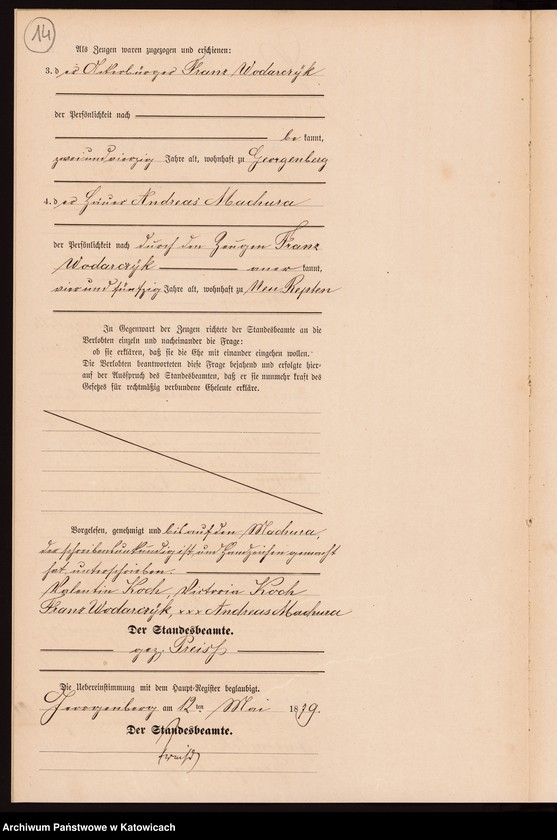 14
Als Zeugen waren zugezogen und erschienen:
3. der Ackerbürger Franz Wodarczÿk
der Persönlichkeit nach
bekannt,
zweiundvierzig Jahre alt, wohnhaft zu Georgenberg
4. der Häuer Andreas Machura
der Persönlichkeit nach durch den Zeugen Franz
Wodarczÿk kannt,
vier und fünfzig Jahre alt, wohnhaft zu Neu Repten
In Gegenwart der Zeugen richtete der Standesbeamte an die
Verlobten einzeln und nacheinander die Frage:
ob sie erklären, daß sie die Ehe mit einander eingehen wollen.
Die Verlobten beantworteten diese Frage bejahend und erfolgte hier-
auf der Ausspruch des Standesbeamten, daß er sie nunmehr kraft des
Gesetzes für rechtmäßig verbundene Eheleute erkläre.
Vorgelesen, genehmigt und bis auf den Machura,
der schreibensunkundig ist und Handzeichen gemacht
hat unterschrieben.
Valentin Koch, Victoria Koch
Franz Wodarczÿk, xxx Andreas Machura
Der Standesbeamte.
gez. Preiss
Die Uebereinstimmung mit dem Haupt-Register beglaubigt.
Georgenberg am 12ten Mai 1879.
Der Standesbeamte.
Preiss
Archiwum Państwowe w Katowicach